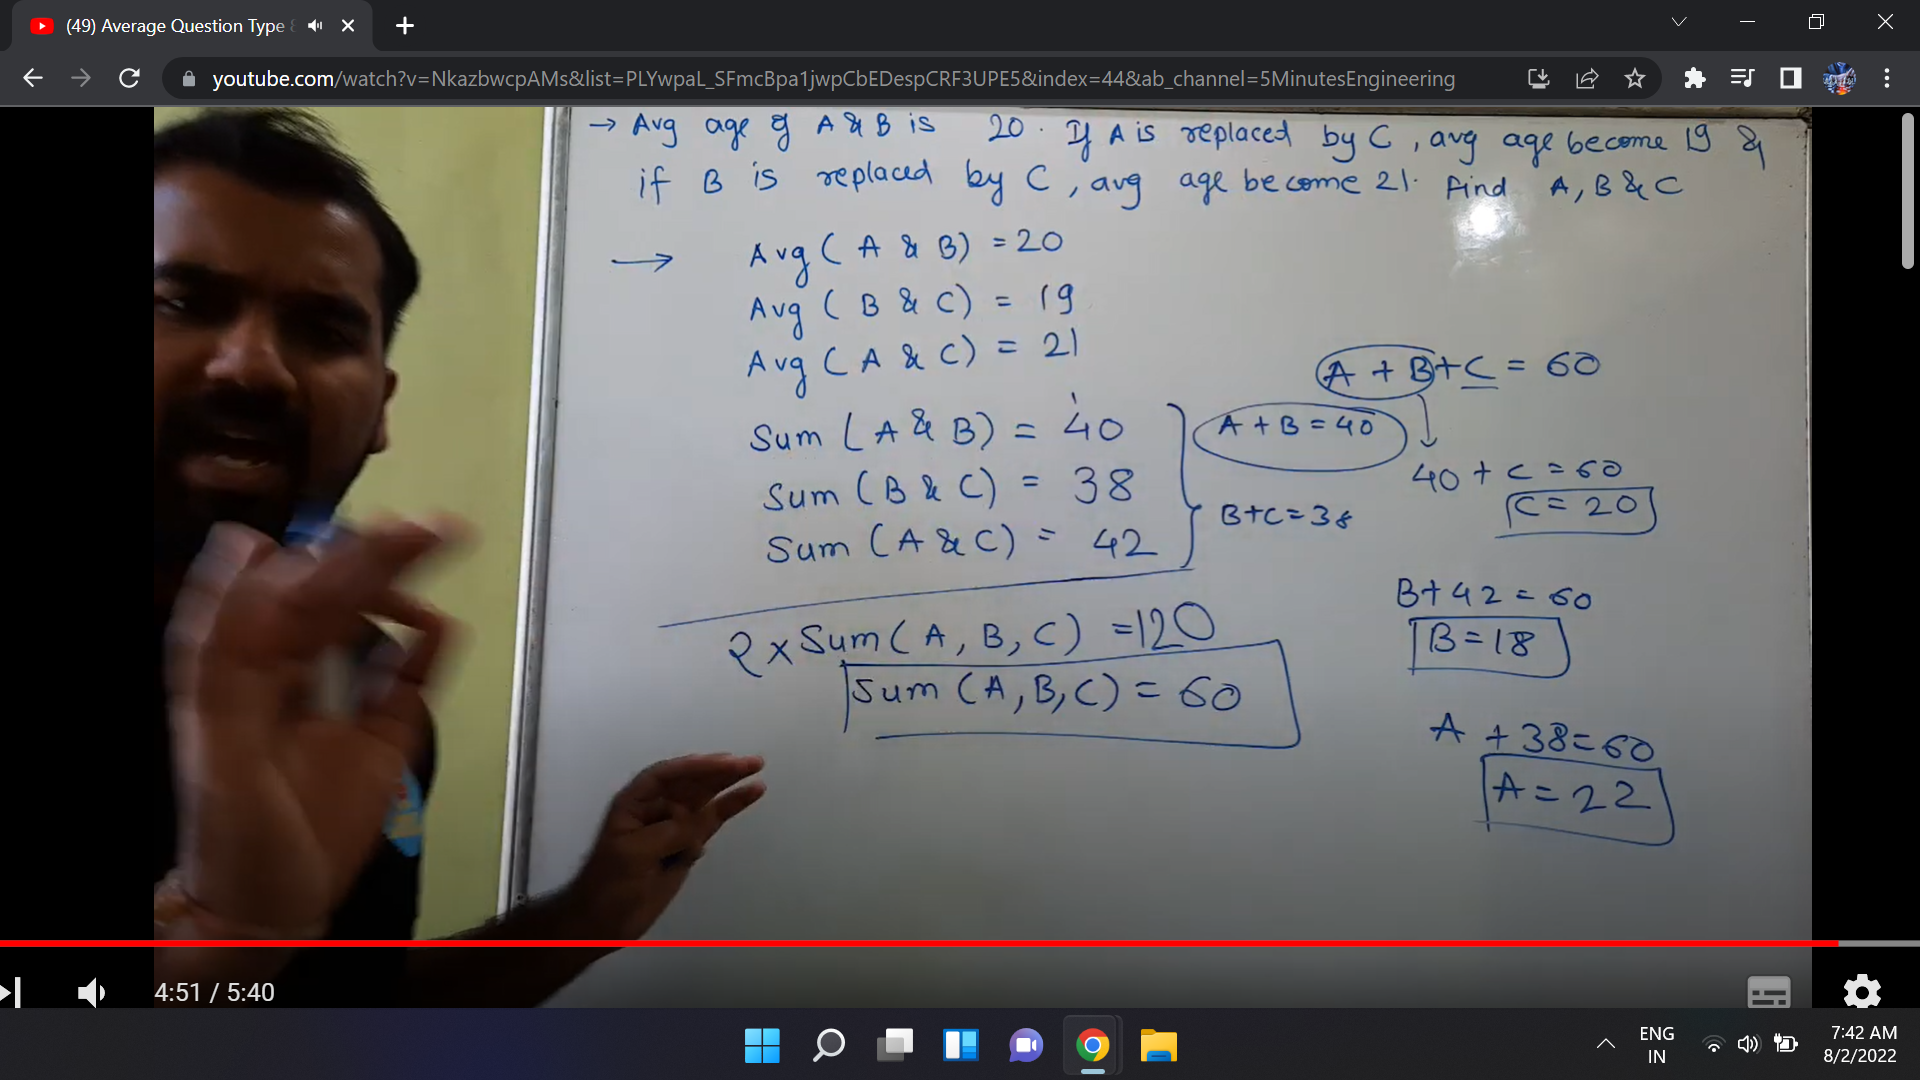 (49) Average Question Type
youtube.com/watch?v=NkazbwcpAMs&list=PLYwpaL_SFmcBpa1jwpCbEDespCRF3UPE5&index=44&ab_channel=5MinutesEngineering
→ Avg age of A & B is 20. If A is replaced by C, avg age become 19 &
if B is replaced by C, avg age become 21. Find A, B & C
→ Avg (A & B) = 20
Avg (B & C) = 19
Avg (A & C) = 21
Sum (A & B) = 40
Sum (B & C) = 38
Sum (A & C) = 42
2 x Sum (A, B, C) = 120
Sum (A, B, C) = 60
A + B + C = 60
A + B = 40
40 + C = 60
C = 20
B+C = 38
B + 42 = 60
B = 18
A + 38 = 60
A = 22
4:51 / 5:40
ENG
IN
7:42 AM
8/2/2022